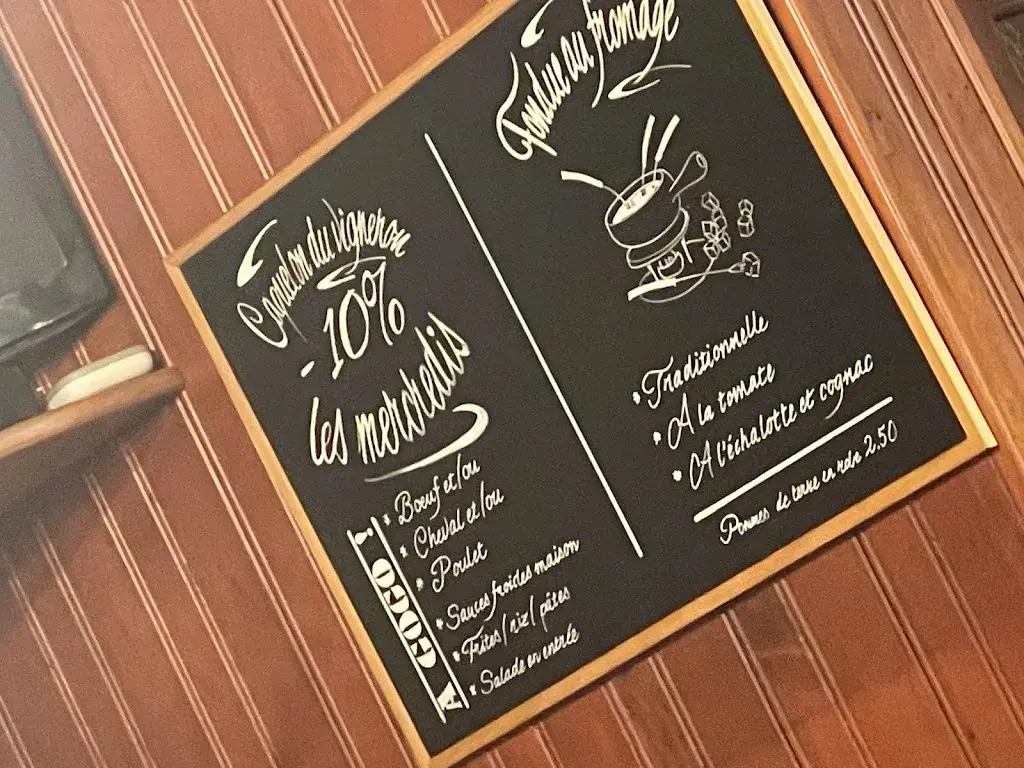 Caquelon du vigneron
- 10%
les mercredis
A GOGO !
* Boeuf et/ou
* Cheval et/ou
* Poulet
* Sauces froides maison
* Frites / riz / pâtes
* Salade en entrée
Fondue au fromage
* Traditionnelle
* A la tomate
* A l'échalotte et cognac
Pommes de terre en robe 2.50